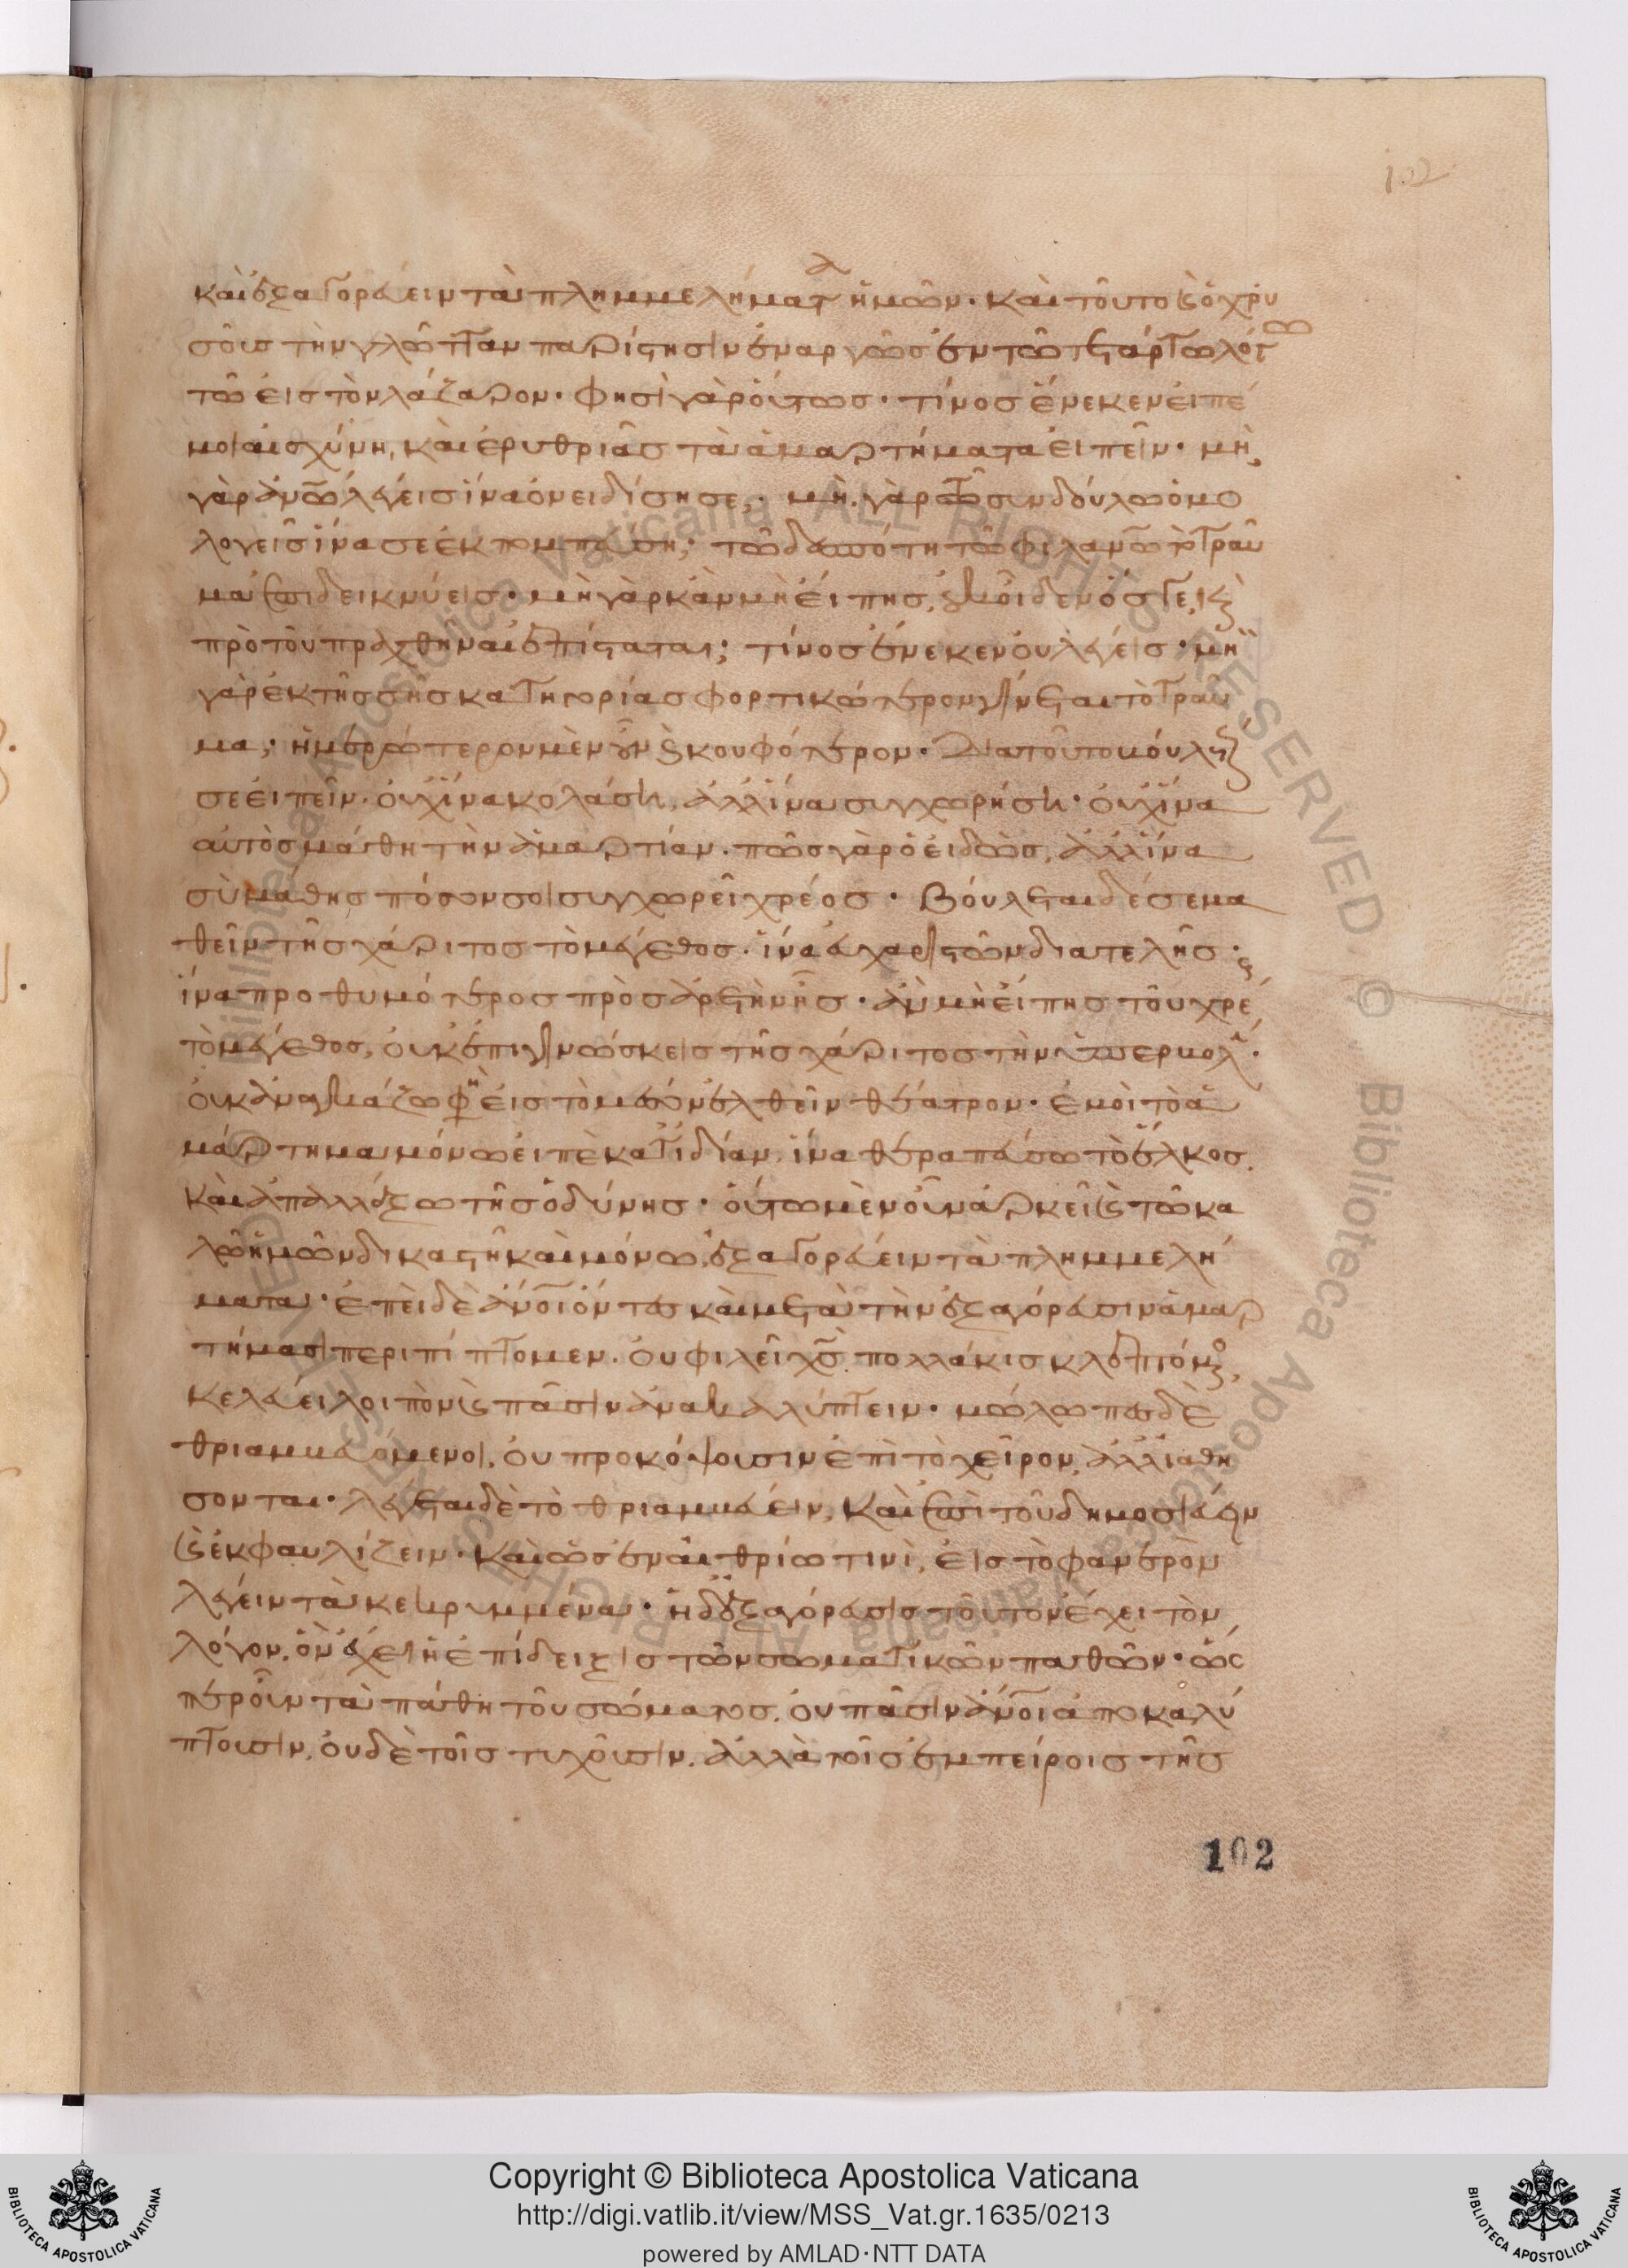 102
καὶ ἐξαγορεύειν τὰ πλημμελήματα ἡμῶν· καὶ τοῦτο καὶ ὁ χρυ
σοῦς τὴν γλῶτταν παρίστησιν ἐναργῶς ἐν τῶ τετάρτω λόγω
τῶ εἰς τὸν λάζαρον· φησὶ γὰρ οὕτως· τίνος ἕνεκεν εἰπέ
μοι αἰσχύνη, καὶ ἐρυθριᾶς τὰ ἁμαρτήματα εἰπεῖν· μὴ
γὰρ ἀνω λέγεις ἵνα ὀνειδίση σε; μὴ γὰρ τῶ συνδούλω ὁμο
λογεῖς ἵνα σε ἐκπομπεύση; τῶ δεσπότη τῶ φιλανω τὸ τραῦ
μα ἐπιδεικνύεις· μὴ γὰρ κἂν μὴ εἴπης, ἀγνοεῖ δεν ὅς γε καὶ
πρὸ τοῦ πραχθῆναι ἐπίσταται; τίνος ἕνεκεν οὐ λέγεις· μὴ
γὰρ ἐκ τῆς σῆς κατηγορίας φορτικώτερον γίνεται τὸ τραῦ
μα; ἡμερώτερον μὲν οὖν καὶ κουφότερον· διὰ τοῦτο βούλεται
σε εἰπεῖν· οὐχ ἵνα κολάση, ἀλλ ἵνα συγχωρήση· οὐχ ἵνα
αὐτὸς μάθη τὴν ἁμαρτίαν· πῶς γὰρ ὁ εἰδὼς, ἀλλ ἵνα
σὺ μάθης πόσον σοι συγχωρεῖ χρέος· βούλεται δέ σε μα
θεῖν τῆς χάριτος τὸ μέγεθος· ἵνα εὐχαριστῶν διατελῆς· καὶ
ἵνα προθυμότερος πρὸς ἀρετὴν ῆς· ἂν μὴ εἴπης τοῦ χρέ
τὸ μέγεθος, οὐκ ἐπιγινώσκεις τῆς χάριτος τὴν ὑπερβολ·
οὐκ ἀναγκάζω φη εἰς τὸ μέσον ἐλθεῖν θέατρον· ἐμοὶ τὸ ἁ
μάρτημα μόνω εἰπὲ κατ ἰδίαν, ἵνα θεραπεύσω τὸ ἕλκος.
καὶ ἀπαλλάξω τῆς ὀδύνης· οὕτω μὲν οὖν ἀρκεῖ καὶ τῶ κα
λῶ ἡμῶν δικαστῆ καὶ μόνω, ἐξαγορεύειν τὰ πλημμελή
ματα· ἐπεὶ δὲ ἀνοι ὄντες καὶ μετὰ τὴν ἐξαγόρευσιν ἁμαρ
τήμασι περιπίπτομεν. οὐ φιλεῖ χς πολλάκις κλεπτόμενος,
κελεύει λοιπὸν καὶ πᾶσιν ἀνακαλύπτειν· μώλωπες δὲ
θριαμβευόμενοι, οὐ προκόψουσιν ἐπὶ τὸ χεῖρον, ἀλλ ἰαθή
σονται· λέγεται δὲ τὸ θριαμβεύειν, καὶ ἐπὶ τοῦ δημοσιεύειν
καὶ ἐκφαυλίζειν· καὶ ὡς ἐν αἰθρίω τινὶ, εἰς τὸ φανερὸν
λέγειν τὰ κεκρυμμένα· ἡ δὲ ἐξαγόρευσις τοῦτον ἔχει τὸν
λόγον, ὃν ἔχει ἡ ἐπίδειξις τῶν σωματικῶν παθῶν· ὥς
περ οὖν τὰ πάθη τοῦ σώματος, οὐ πᾶσιν ἀνοι ἀποκαλύ
πτουσιν, οὐδὲ τοῖς τυχοῦσιν, ἀλλὰ τοῖς ἐμπείροις τῆς
102
Copyright © Biblioteca Apostolica Vaticana
http://digi.vatlib.it/view/MSS_Vat.gr.1635/0213
powered by AMLAD·NTT DATA